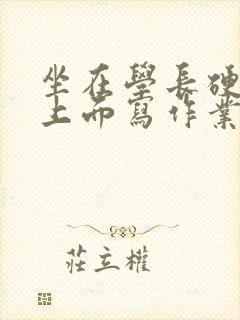 坐在學長硬
上而寫作業
莊立權